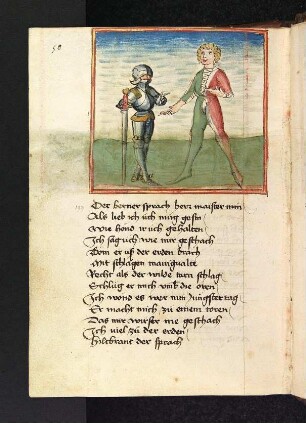 58
Der berner sprach herr maister min
Als lieb ich üch müg gesin
Wie hond ir üch gehalten
Ich sag üch wie mir geschach
Dom er uß der erden brach
Mit schlegen manigualt
Recht als der wilde turn schlag
Schlüg er mich vmb die oren
Ich wond es wer min Jungster tag
Er macht mich zu einem toren
Das mir wirser nie geschach
Ich viel zu der erden
Hiltbrant der sprach